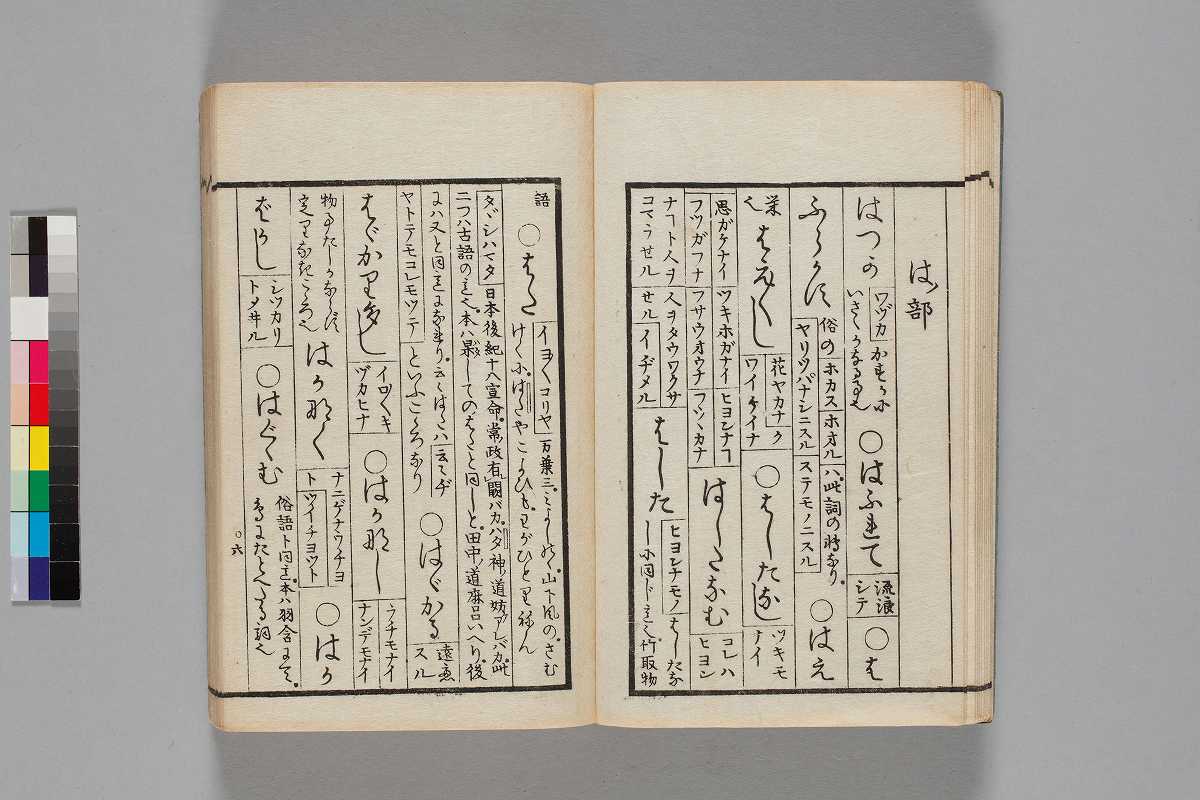 は部
はつか ワヅカ かすかに いさゝかなる事也 ○はふれて 流浪シテ ○は
ふらかす 俗の ホカス ホオル ヤリツパナシニスル ハ此詞の略なり。 ステモノニスル ○はえ
栄也 はえ〴〵し 花ヤカナク ワイケイナ ○はしたなし ツキモナイ
思ガケナイ ツキホガナイ ヒヨンナコ フツガフナ フサウオウナ フツヽカナ はしたなむ コレハヒヨン
ナヿト人ヲ 人ヲタウワクサ コマラせル せル イヂメル はした ヒヨンナモノ はしたなしに同じ意也 竹取物
語 ○はた イヨ〳〵 コリヤ 万葉三。みよしのゝ山下風の。さむけくに。はたやこよひも。わがひとりねん
タヾシハマタ 日本後紀十八宣命。常政有闕バカ。ハタ神道妨アレバカ。此
二フハ古語の意也。本ハ果してのはたと同しと。田中道麻呂いへり。後
にハ又と同意になれり。云々はたハ 云々ヂ
ヤトテモコレモツテ といふこゝろなり ○はゞかる 遠慮スル
はゞかりおほし イロ〳〵キヅカヒナ ○はかなし ラチモナイ ナンデモナイ
物事たしかならず 定りなきこゝろ也 はかなく ナニゲナウチヨト ツイチヨツト ○はか
ばかし シツカリ トメヰル ○はぐゝむ 俗語ト同意。本ハ羽含にて。鳥にたとへたる詞也
○六